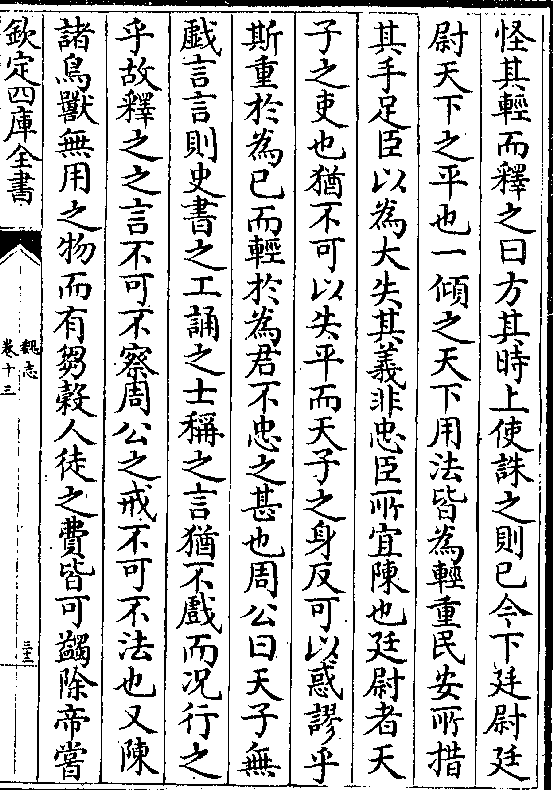 怪其輕而釋之曰方其時上使誅之則已今下廷尉廷
尉天下之平也一傾之天下用法皆為輕重民安所措
其手足臣以為大失其義非忠臣所宜陳也廷尉者天
子之吏也猶不可以失平而天子之身反可以惑謬乎
斯重於為已而輕於為君不忠之甚也周公曰天子無
戲言言則史書之工誦之士稱之言猶不戲而况行之
乎故釋之之言不可不察周公之戒不可不法也又陳
諸鳥獸無用之物而有芻榖人徒之費皆可蠲除帝嘗
欽定四庫全書
魏志
卷十三
三十三